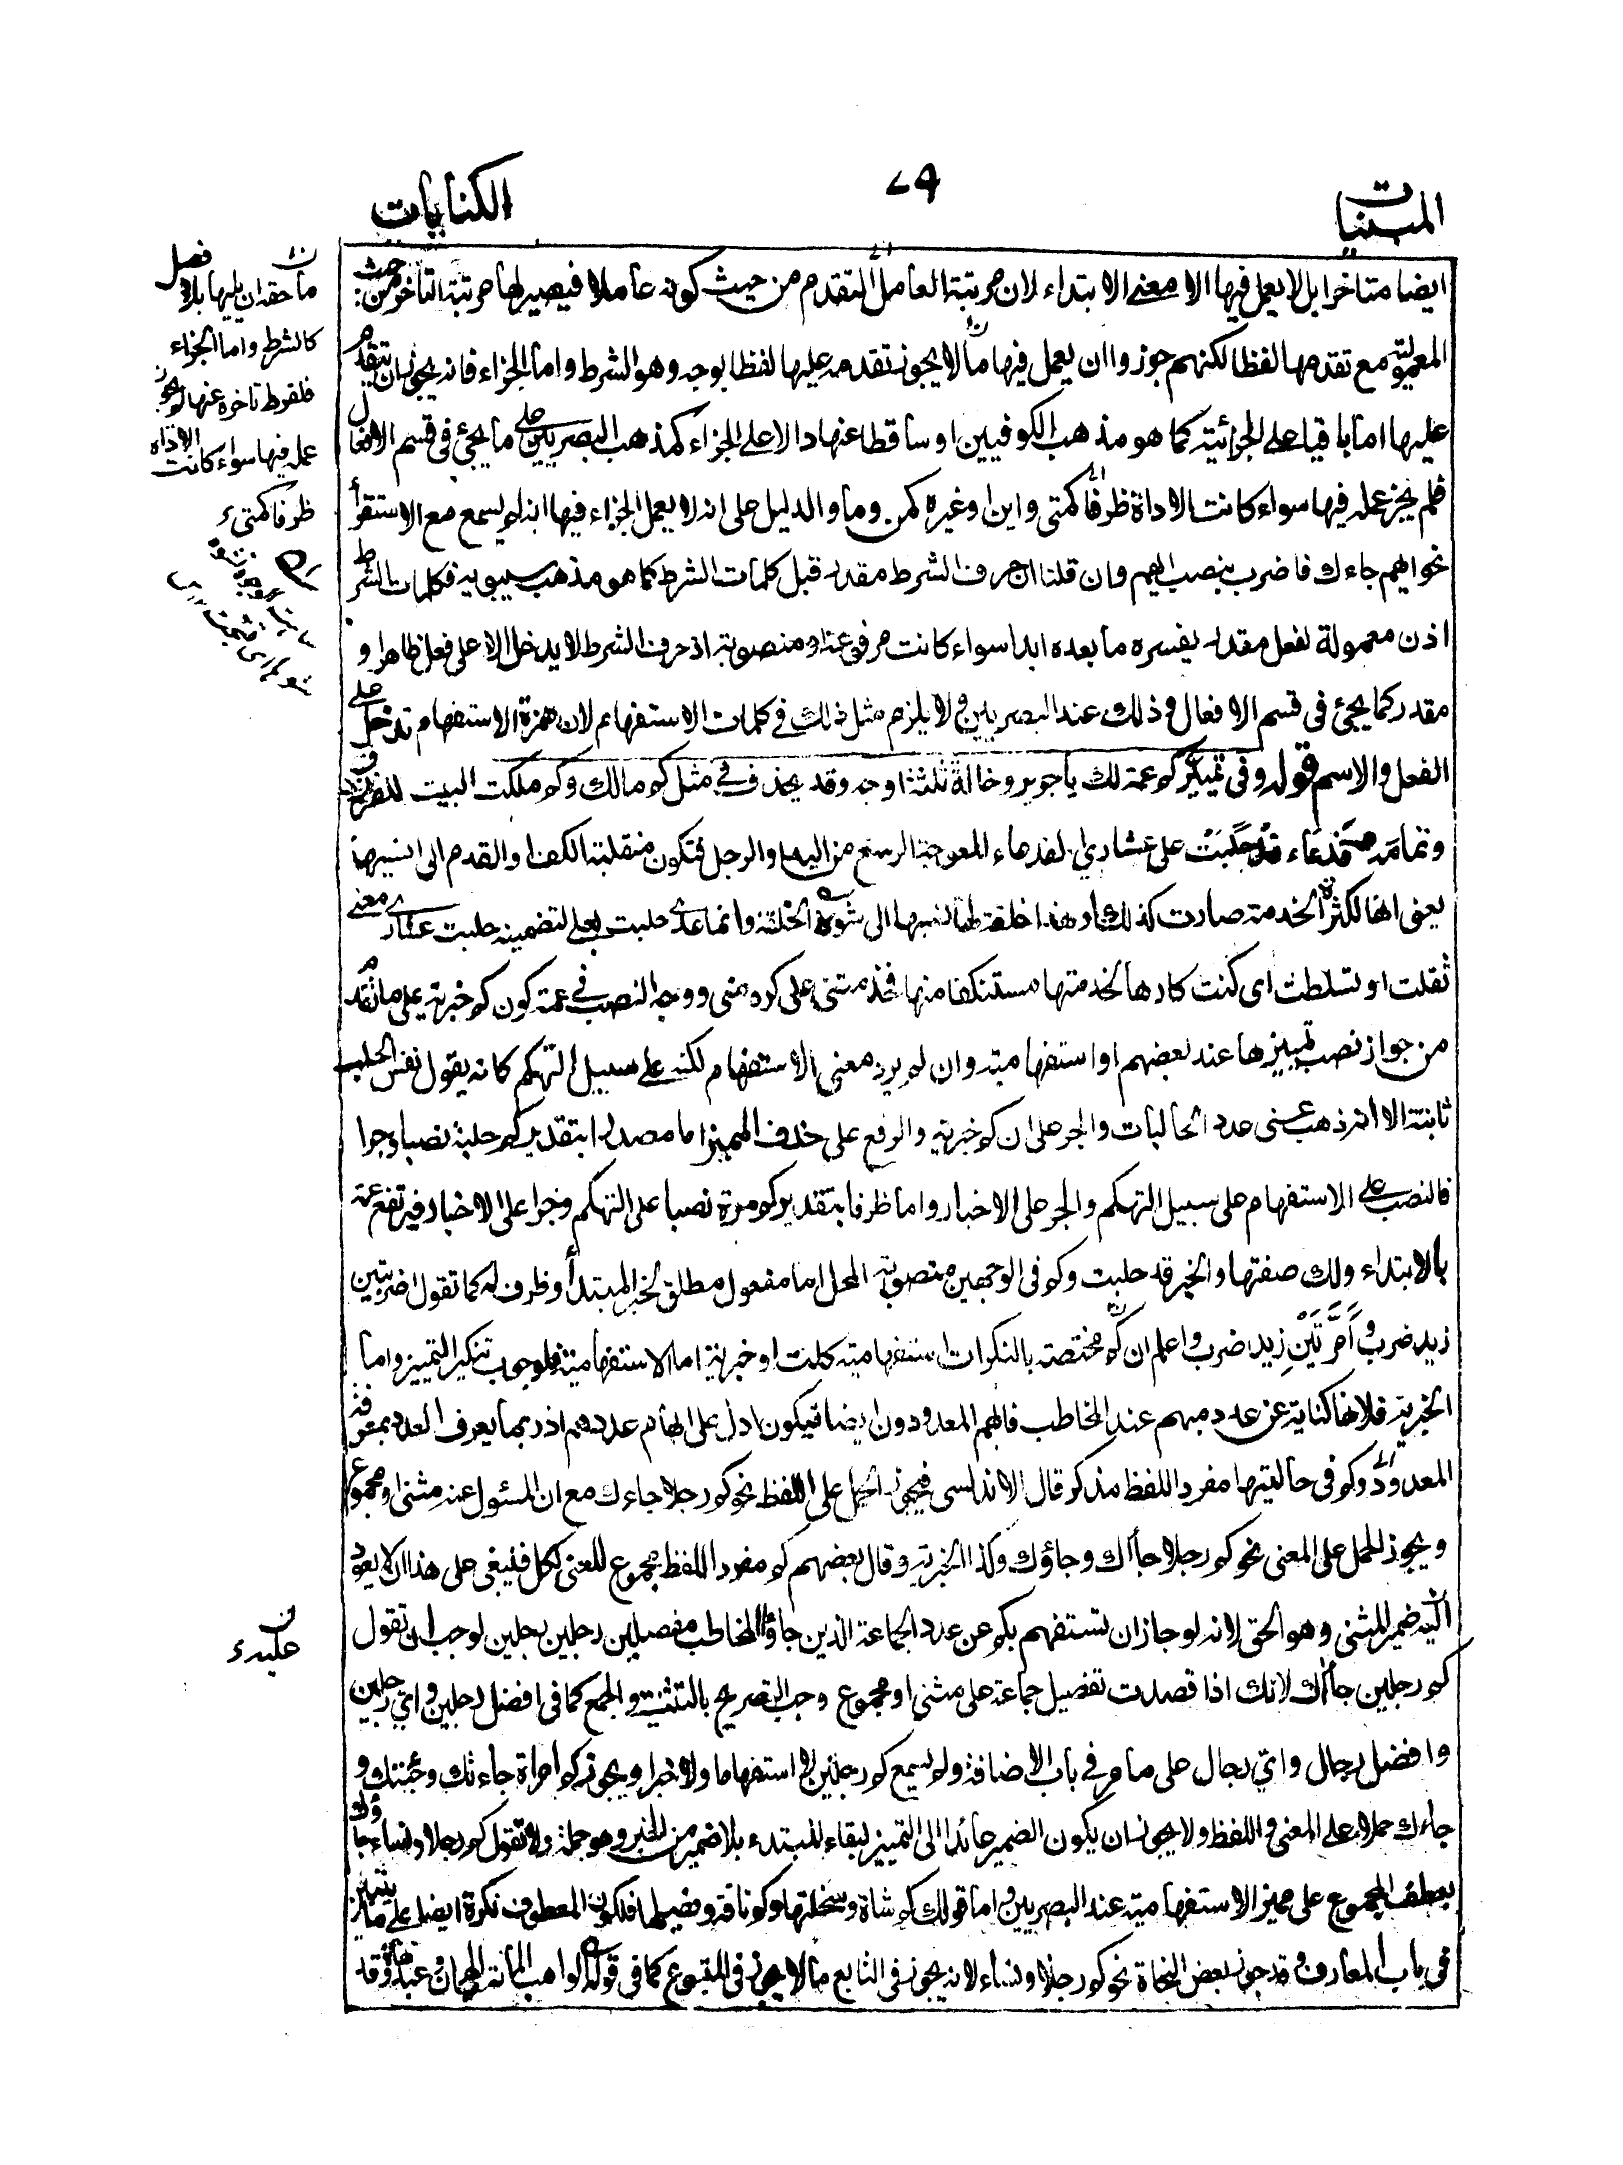 المبنيات
٧٩
الكنايات
ايضا متاخرا بل لا يعمل فيها الا معنى الابتداء لان مرتبة العامل التقدم من حيث كونه عاملا فيصير لها مرتبة التاخر من حيث
المعمولية مع تقدمها لفظا لكنهم جوزوا ان يعمل فيها ما لا يجوز تقدمه عليها لفظا بوجه وهو الشرط واما الجزاء فانه يجوز ان يتقدم
عليها اما باقيا على الجزائية كما هو مذهب الكوفيين او ساقطا عنها دالا على الجزاء كمذهب البصريين على ما يجئ فى قسم الافعال
فلم يجز عمله فيها سواء كانت الاداة ظرفا كمتى واين او غيره كمن وما والدليل على انه لا يعمل الجزاء فيها انه لم يسمع مع الاستقرأ
نحو ايهم جاءك فاضرب بنصب ايهم وان قلنا ان حرف الشرط مقدر قبل كلمات الشرط كما هو مذهب سيبويه فكلمات الشرط
اذن معمولة لفعل مقدر يفسره ما بعده ابدا سواء كانت مرفوعة او منصوبة اذ حرف الشرط لا يدخل الا على فعل ظاهر او
مقدر كما يجئ فى قسم الافعال وذلك عند البصريين ولا يلزم مثل ذلك فى كلمات الاستفهام لان همزة الاستفهام تدخل على
الفعل والاسم قوله وفى تمييز كم عمة لك يا جرير وخالة ثلثة اوجه وقد يحذف فى مثل كم مالك وكم ملكت البيت للفرزدق
وتمامه فدعاء قد حلبت على عشارى الفدعاء المعوجة الرسغ من اليد او الرجل فتكون منقلبة الكف او القدم الى انسيهما
يعنى انها لكثرة الخدمة صارت كذلك او هذا خلقة لها نسبها الى شوه الخلقة وانما عدى حلبت بعلى لتضمينه حلبت عشارى معنى
ثقلت او تسلطت اى كنت كارها لخدمتها مستنكفا منها فخدمتنى على كره منى ووجه النصب فى عمة كون كم خبرية على ما تقدم
من جواز نصب تمييزها عند بعضهم او استفهامية وان لم يرد معنى الاستفهام لكنه على سبيل التهكم كانه يقول نفس الحلب
ثابتة الا انه ذهب عنى عدد الحالبات والجر على ان كم خبرية والرفع على حذف المميز اما مصدرا بتقدير كم حلبة نصبا وجرا
فالنصب على الاستفهام على سبيل التهكم والجر على الاخبار واما ظرفا بتقدير كم مرة نصبا على التهكم وجرا على الاخبار فيرتفع عمة
بالابتداء ولك صفتها والخبر قد حلبت وكم فى الوجهين منصوبة المحل اما مفعول مطلق لخبر المبتدأ او ظرف له كما تقول اضربتين
زيد ضرب وأمرّتين زيد ضرب واعلم ان كم مختصة بالنكرات استفهامية كانت او خبرية اما الاستفهامية فلوجوب تنكير التمييز واما
الخبرية فلانها كناية عن عدد مبهم عند المخاطب فابهم المعدودون ايضا ليكون ادل على ابهام عددهم اذ ربما يعرف العدد بمعرفة
المعدود وكم فى حالتيها مفرد اللفظ مذكر قال الاندلسى فيجوز الحمل على اللفظ نحو كم رجلا جاءك مع ان المسئول عنه مثنى او مجموع
ويجوز الحمل على المعنى نحو كم رجلا جاأك وجاؤك وكذا الخبرية وقال بعضهم كم مفرد اللفظ مجموع المعنى ككل فينبغى على هذا ان لا يعود
اليه ضمير المثنى وهو الحق لانه لو جاز ان تستفهم بكم عن عدد الجماعة الذين جاؤا المخاطب مفصلين رجلين رجلين لوجب ان تقول
كم رجلين جاأك لانك اذا قصدت تفصيل جماعة على مثنى او مجموع وجب التصريح بالتثنية والجمع كما فى افضل رجلين واى رجلين
وافضل رجال واى رجال على ما مر فى باب الاضافة ولم يسمع كم رجلين لا استفهاما ولا خبرا ويجوز كم امراة جاءتك وجئنك و
جاءك حملا على المعنى واللفظ ولا يجوز ان يكون الضمير عائدا الى التمييز لبقاء المبتدء بلا ضمير من الخبر وهو جملة ولا تقول كم رجلا ونساء جاؤك
بعطف المجموع على مميز الاستفهامية عند البصريين واما قولك كم شاة وسخلتها وكم ناقة وفصيلها فلكون المعطوف نكرة ايضا على ما يتبين
فى باب المعارف وقد جوز بعض النحاة نحو كم رجلا ونساء لانه يجوز فى التابع ما لا يجوز فى المتبوع كما فى قوله الواهب المائة الهجان وعبدها وقد
ما حقه ان يليها بلا فصل
كالشرط واما الجزاء
فلفرط تاخره عنها لم يجز
عمله فيها سواء كانت الاداة
ظرفا كمتى
عليه